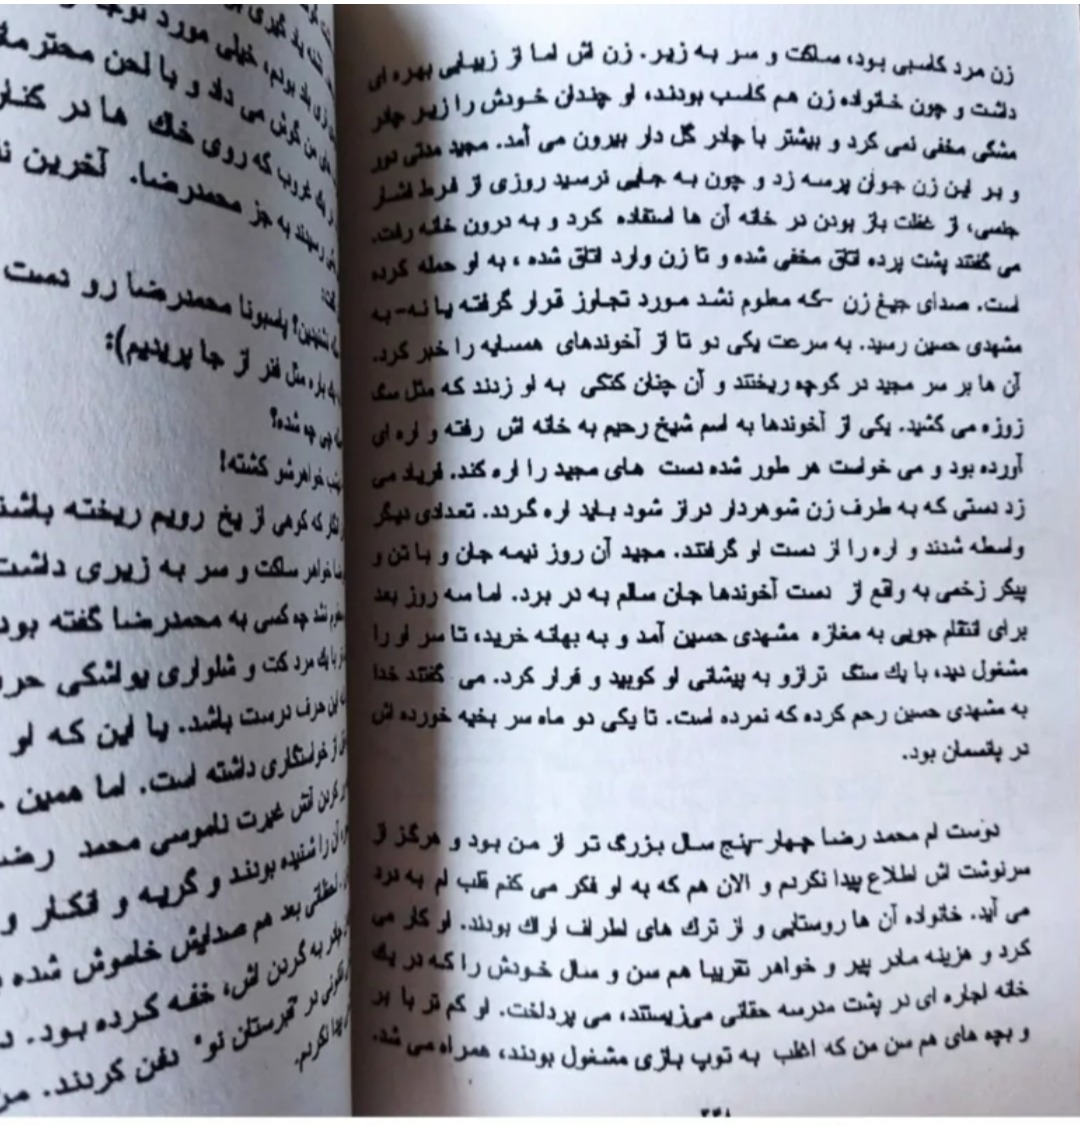 زن مرد کاسبی بود، ساکت و سر به زیر. زن اش اما از زیبایی بهره ای
داشت و چون خانواده زن هم کاسب بودند، او چندان خودش را زیر چادر
مشکی مخفی نمی کرد و بیشتر با چادر گل دار بیرون می آمد. مجید مدتی دور
و بر این زن جوان پرسه زد و چون به جایی نرسید روزی از فرط فشار
جنسی، از غفلت باز بودن در خانه آن ها استفاده کرد و به درون خانه رفت.
می گفتند پشت پرده اتاق مخفی شده و تا زن وارد اتاق شده ، به او حمله کرده
است. صدای جیغ زن -که معلوم نشد مورد تجاوز قرار گرفته یا نه- به
مشهدی حسین رسید. به سرعت یکی دو تا از آخوندهای همسایه را خبر کرد.
آن ها بر سر مجید در کوچه ریختند و آن چنان کتکی به او زدند که مثل سگ
زوزه می کشید. یکی از آخوندها به اسم شیخ رحیم به خانه اش رفته و اره ای
آورده بود و می خواست هر طور شده دست های مجید را اره کند. فریاد می
زد دستی که به طرف زن شوهردار دراز شود باید اره گردد. تعدادی دیگر
واسطه شدند و اره را از دست او گرفتند. مجید آن روز نیمه جان و با تن و
پیکر زخمی به واقع از دست آخوندها جان سالم به در برد. اما سه روز بعد
برای انتقام جویی به مغازه مشهدی حسین آمد و به بهانه خرید، تا سر او را
مشغول دید، با یک سنگ ترازو به پیشانی او کوبید و فرار کرد. می گفتند خدا
به مشهدی حسین رحم کرده که نمرده است. تا یکی دو ماه سر بخیه خورده اش
در پانسمان بود.
دوست ام محمد رضا چهار-پنج سال بزرگ تر از من بود و هرگز از
سرنوشت اش اطلاع پیدا نکردم و الان هم که به او فکر می کنم قلب ام به درد
می آید. خانواده آن ها روستایی و از ترک های اطراف اراک بودند. او کار می
کرد و هزینه مادر پیر و خواهر تقریبا هم سن و سال خودش را که در یک
خانه اجاره ای در پشت مدرسه حقانی می‌زیستند، می پرداخت. او کم تر با بر
و بچه های هم سن من که اغلب به توپ بازی مشغول بودند، همراه می شد.
خیلی مورد
های من گوش می داد و با لحن محترم
یک غروب که روی خاک ها در کنار
رسیدند به جز محمدرضا. آخرین
نشنیدین؟ پاسبونا محمدرضا رو دست
باره مثل فنر از جا پریدیم):
چی چه شده؟
خواهرشو کشته!
انگار که کوهی از یخ رویم ریخته باشند
خواهر ساکت و سر به زیری داشت
نشد چه کسی به محمدرضا گفته بود
با یک مرد کت و شلواری یواشکی
این حرف درست باشد. یا این که او
از خواستگاری داشته است. اما همین
کردن آتش غیرت ناموسی محمد رضا
آن را شنیده بودند و گریه و انکار و
لحظاتی بعد هم صدایش خاموش شده
چادر به گردن اش، خفه کرده بود.
در "قبرستان نو" دفن کردند. من
پیدا نکردیم.